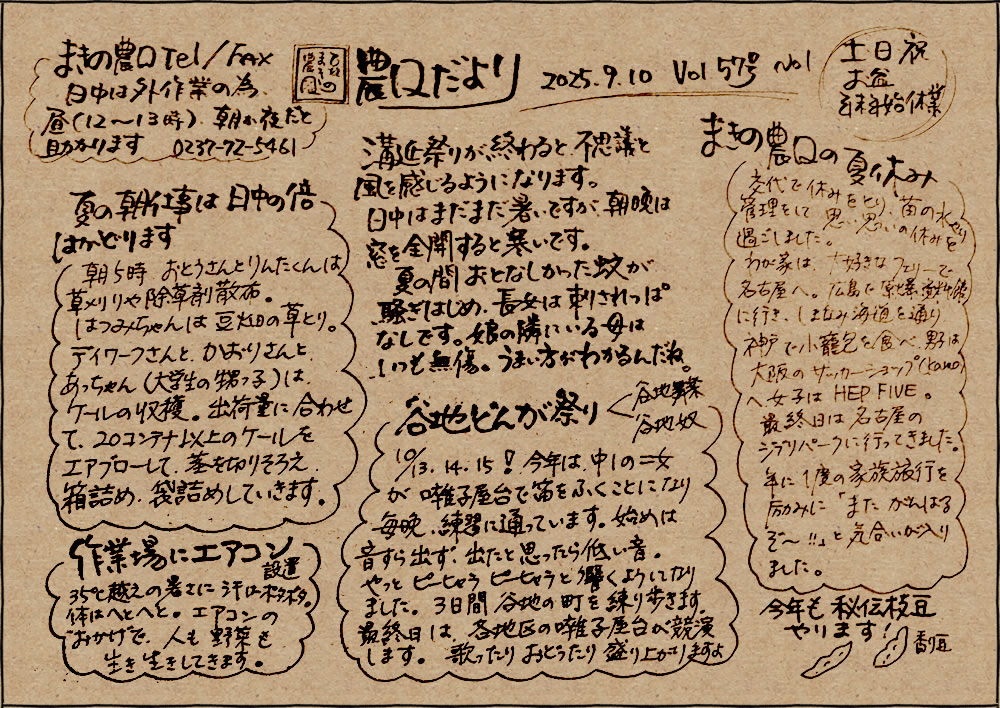 まきの農口Tel/FAX
日中は外作業の為、
昼(12～13時)、朝か夜だと
助かります 0237-72-5461
農口だより 2025.9.10 Vol 57号 No1
土日祝
お盆
年末年始休業
夏の朝仕事は日中の倍
はかどります
朝5時 おとうさんとりんたくんは
草メリリや除草剤散布。
はつみちゃんは豆畑の草とり。
デイワークさんと、かおりさんと、
あっちゃん(大学生の甥っ子)は、
ケールの収穫。出荷量に合わせ
て、20コンテナ以上のケールを
エアブローして、茎を切りそろえ、
箱詰め、袋詰めしていきます。
作業場にエアコン
設置
35℃越えの暑さに汗はボタボタ。
体はへとへと。エアコンの
おかげで、人も野菜も
生き生きしてきます。
溝延祭りが終わると、不思議と
風を感じるようになります。
日中はまだまだ暑いですが、朝晩は
窓を全開すると寒いです。
夏の間おとなしかった蚊が
騒ぎはじめ、長女は刺されっぱ
なしです。娘の隣にいる母は
いつも無傷。うまい方がわかるんだね。
谷地どんが祭り
谷地舞楽
谷地奴
10/13.14.15! 今年は、中1の二女
が囃子屋台で笛をふくことになり
毎晩、練習に通っています。始めは
音すら出ず、出たと思ったら低い音。
やっとピーヒャラピーヒャラと響くようになり
ました。3日間 谷地の町を練り歩きます。
最終日は、各地区の囃子屋台が競演
します。歌ったりおどったり盛り上がりますよ
まきの農口の夏休み
交代で休みをとり、苗の水やり
管理をして 思い思いの休みを
過ごしました。
わが家は、大好きなフェリーで
名古屋へ。広島で原爆資料館
に行き、しまなみ海道を通り
神戸で小籠包を食べ、男は
大阪のサッカーショップ(kamo)
へ女子は HEP FIVE。
最終日は名古屋の
ジブリパークに行ってきました。
年に1度の家族旅行を
励みに「また がんばる
ぞ〜!!」と気合いが入り
ました。
今年も秘伝枝豆
やります!
香り豆